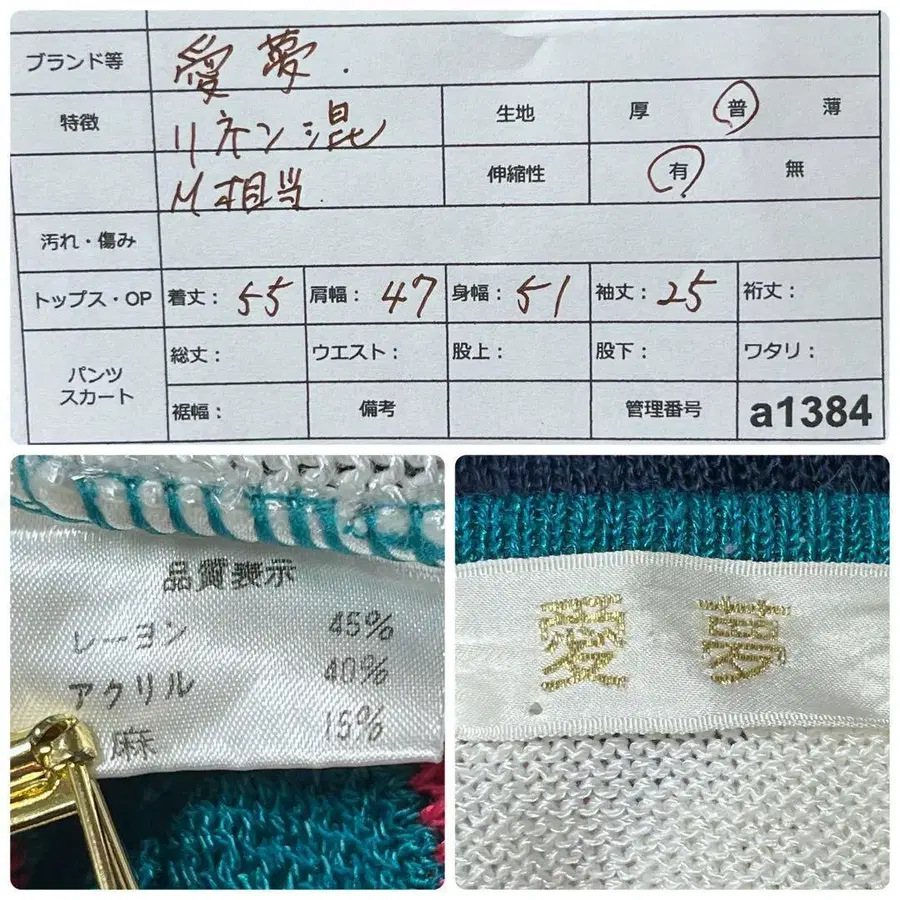 ブランド等 愛夢.
特徴 リネン混 生地 厚 普 薄
M相当. 伸縮性 有 無
汚れ・傷み
トップス・OP 着丈: 55 肩幅: 47 身幅: 51 袖丈: 25 裄丈:
パンツ スカート
総丈: ウエスト: 股上: 股下: ワタリ:
裾幅: 備考 管理番号 a1384
品質表示
レーヨン 45%
アクリル 40%
麻 15%
愛夢